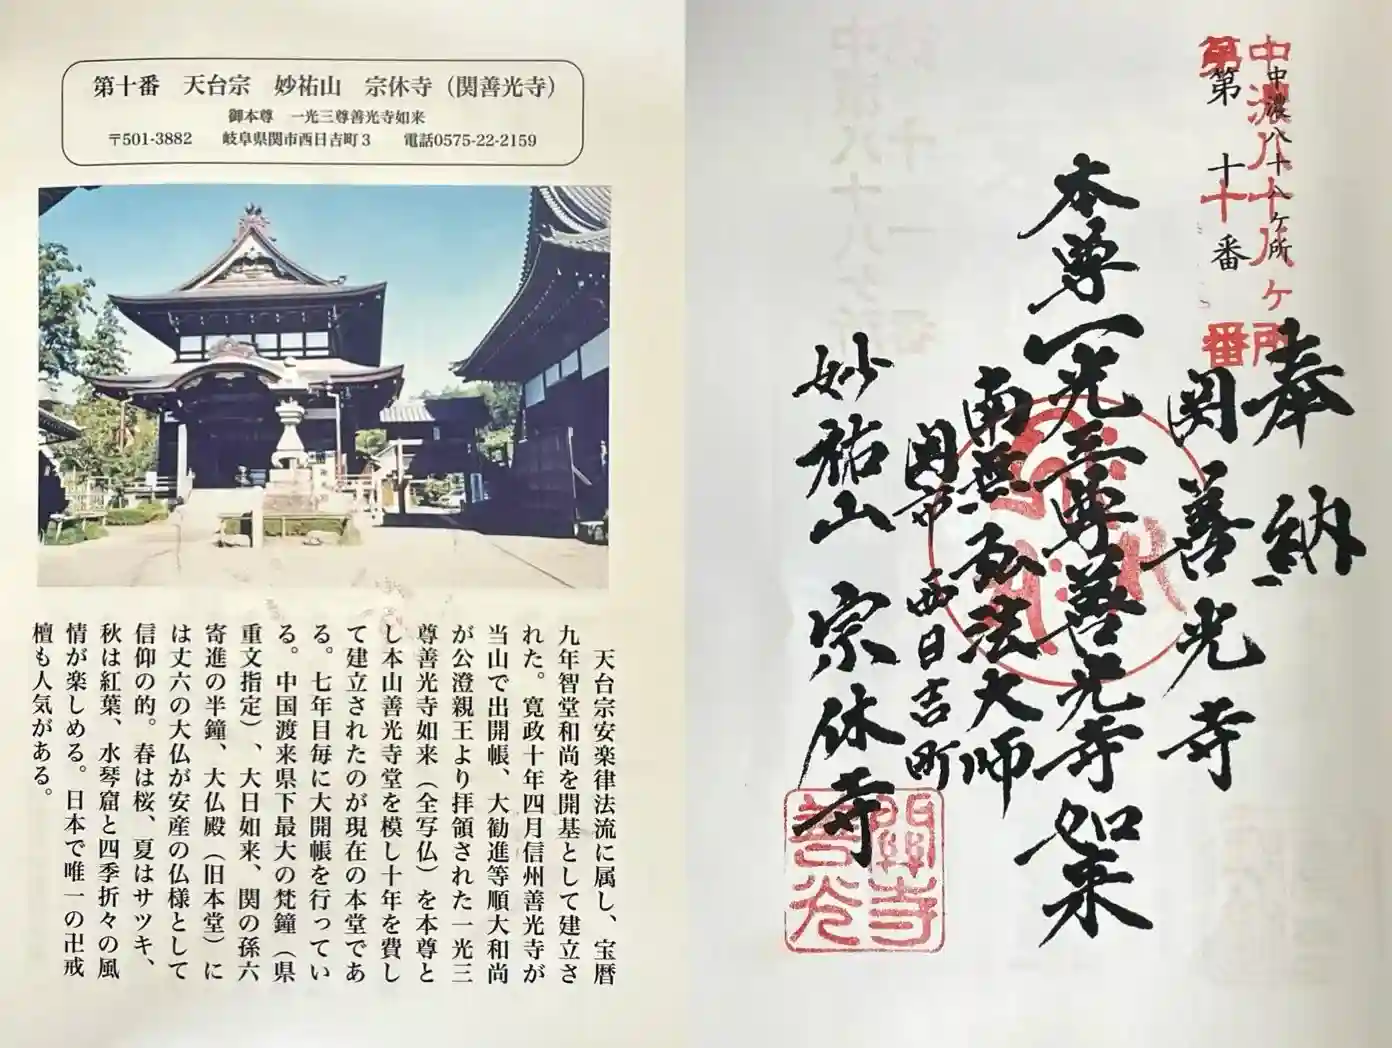 第十番　天台宗　妙祐山　宗休寺（関善光寺）
御本尊　一光三尊善光寺如来
〒501-3882　岐阜県関市西日吉町３　電話0575-22-2159
天台宗安楽律法流に属し、宝暦
九年智堂和尚を開基として建立さ
れた。寛政十年四月信州善光寺が
当山で出開帳、大勧進等順大和尚
が公澄親王より拝領された一光三
尊善光寺如来（全写仏）を本尊と
し本山善光寺堂を模し十年を費し
て建立されたのが現在の本堂であ
る。七年目毎に大開帳を行ってい
る。中国渡来県下最大の梵鐘（県
重文指定）、大日如来、関の孫六
寄進の半鐘、大仏殿（旧本堂）に
は丈六の大仏が安産の仏様として
信仰の的。春は桜、夏はサツキ、
秋は紅葉、水琴窟と四季折々の風
情が楽しめる。日本で唯一の卍戒
壇も人気がある。
中濃八十八ヶ所
第十番
中濃八十八ヶ所
第十番
奉納
関善光寺
本尊一光三尊善光寺如来
南無弘法大師
関市西日吉町
妙祐山宗休寺
關寺
善光